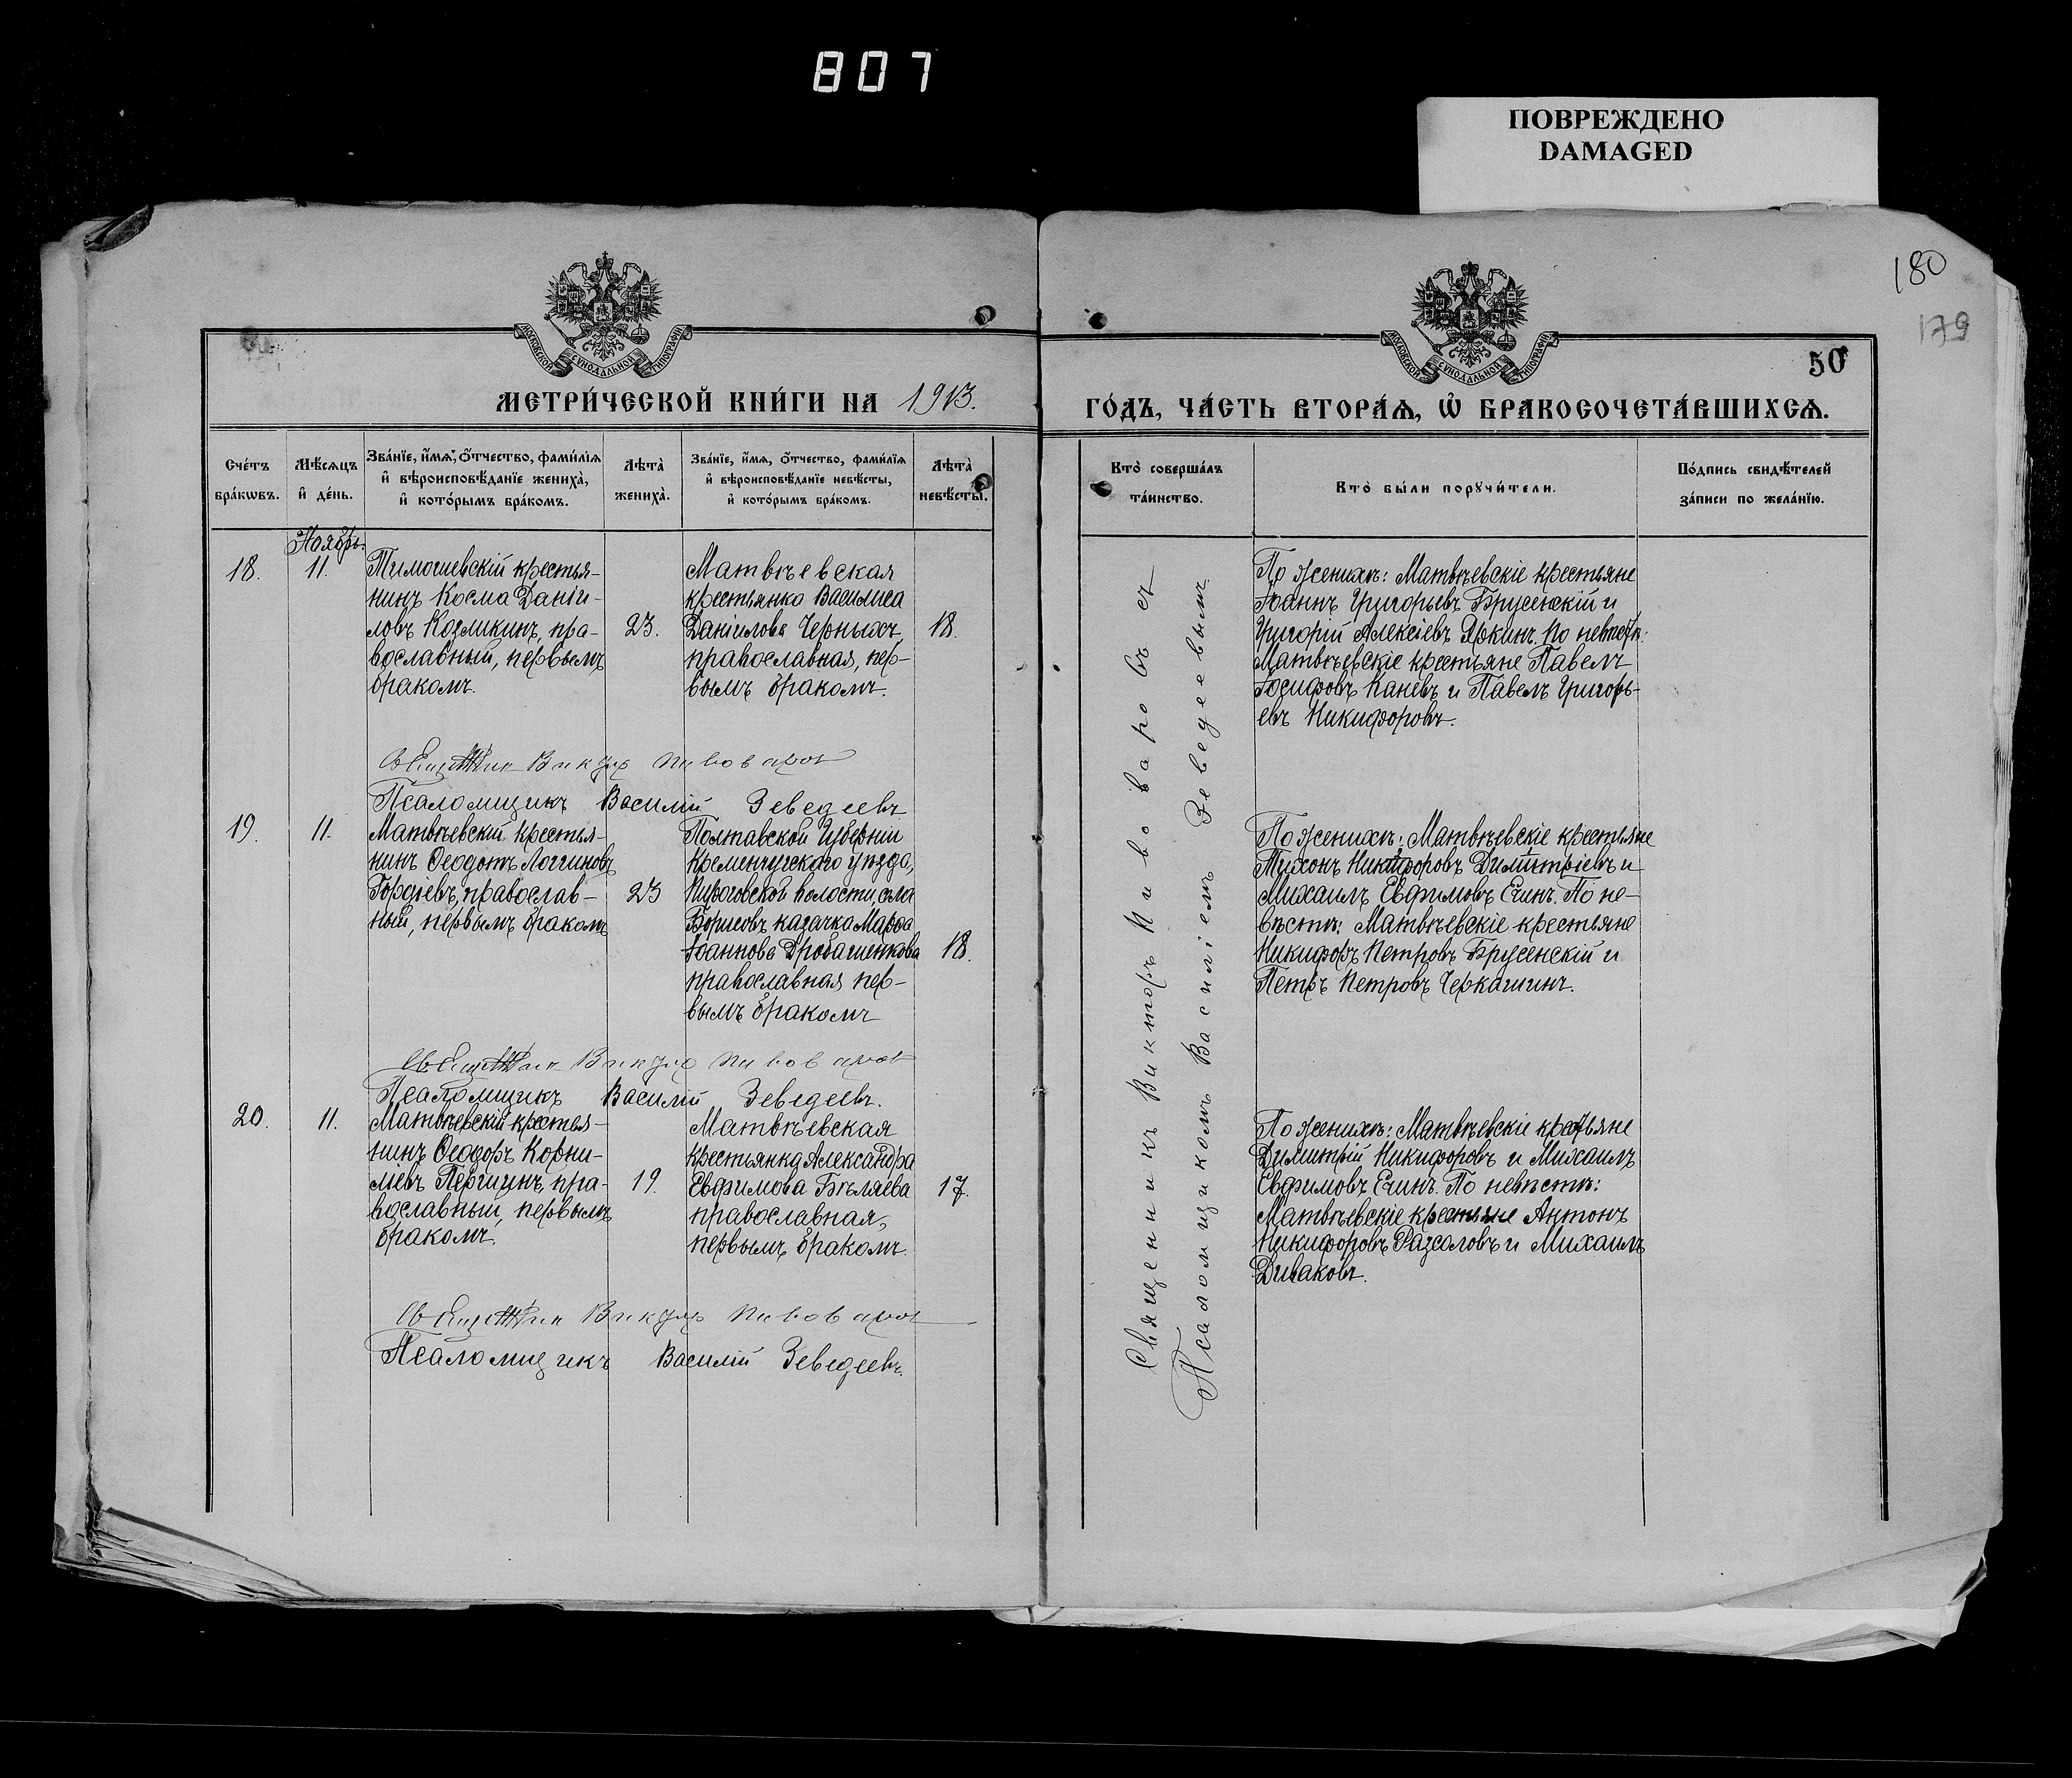 807
ПОВРЕЖДЕНО
DAMAGED
180
179
50
МОСКОВСКОЙ СѴНОДАЛЬНОЙ ТИПОГРАФІИ
МОСКОВСКОЙ СѴНОДАЛЬНОЙ ТИПОГРАФІИ
МЕТРИ́ЧЕСКОЙ КНИ́ГИ НА 1913.
ГО́ДЪ, ЧА́СТЬ ВТОРА́Ѧ, Ѽ БРАКОСОЧЕТА́ВШИХСѦ.
Сче́тъ
бра́кѡвъ.
Мѣ́сѧцъ
и҆ де́нь.
Зва́нїе, и҆́мѧ, ѻ҆́тчество, фами́лїѧ
и҆ вѣроисповѣ́данїе жениха̀,
и҆ кото́рымъ бра́комъ.
Лѣта̀
жениха̀.
Зва́нїе, и҆́мѧ, ѻ҆́тчество, фами́лїѧ
и҆ вѣроисповѣ́данїе невѣ́сты,
и҆ кото́рымъ бра́комъ.
Лѣта̀
невѣ́сты.
Кто̀ соверша́лъ
та́инство.
Кто̀ бы́ли порꙋчи́тели.
По́дпись свидѣ́телей
за́писи по жела́нїю.
Ноябрь.
18.
11.
Тимошевскій крестья-
нинъ Косма Даніи-
ловъ Козликинъ, пра-
вославный, первымъ
бракомъ.
23.
Матвѣевская
крестьянка Василиса
Даніилова Черныхъ,
православная, пер-
вымъ бракомъ.
18.
По женихѣ: Матвѣевскіе крестьяне
Іоаннъ Григорьевъ Брусенскій и
Григорій Алексіевъ Яркинъ. По невѣстѣ:
Матвѣевскіе крестьяне Павелъ
Іосифовъ Каневъ и Павелъ Григорь-
евъ Никифоровъ.
Священникъ Викторъ Пивоваровъ съ
Псаломщикомъ Василіемъ Зеведеевымъ.
Викторъ Пивоваровъ
Псаломщикъ Василій Зеведеевъ
19.
11.
Матвѣевскій крестья-
нинъ Ѳеодотъ Логгиновъ
Гордѣевъ, православ-
ный, первымъ бракомъ
23
Полтавской Губерніи
Кременчугскаго уѣзда,
волости, села
Борисовъ казачка Марѳа
Іоаннова
православная пер-
вымъ бракомъ
18.
По женихѣ: Матвѣевскіе крестьяне
Тихонъ Никифоровъ Димитріевъ и
Михаилъ Евфимовъ Ечинъ. По не-
вѣстѣ: Матвѣевскіе крестьяне
Никифоръ Петровъ Брусенскій и
Петръ Петровъ Черкашинъ.
Викторъ Пивоваровъ
Псаломщикъ Василій Зеведеевъ.
20.
11.
Матвѣевскій крестья-
нинъ Ѳеодоръ Корни-
ліевъ Першинъ, пра-
вославный, первымъ
бракомъ.
19.
Матвѣевская
крестьянка Александра
Евфимова Бѣляева
православная,
первымъ бракомъ.
17.
По женихѣ: Матвѣевскіе крестьяне
Димитрій Никифоровъ и Михаилъ
Евфимовъ Ечинъ. По невѣстѣ:
Матвѣевскіе крестьяне Антонъ
Никифоровъ Разсоловъ и Михаилъ
Диваковъ.
Викторъ Пивоваровъ
Псаломщикъ Василій Зеведеевъ.